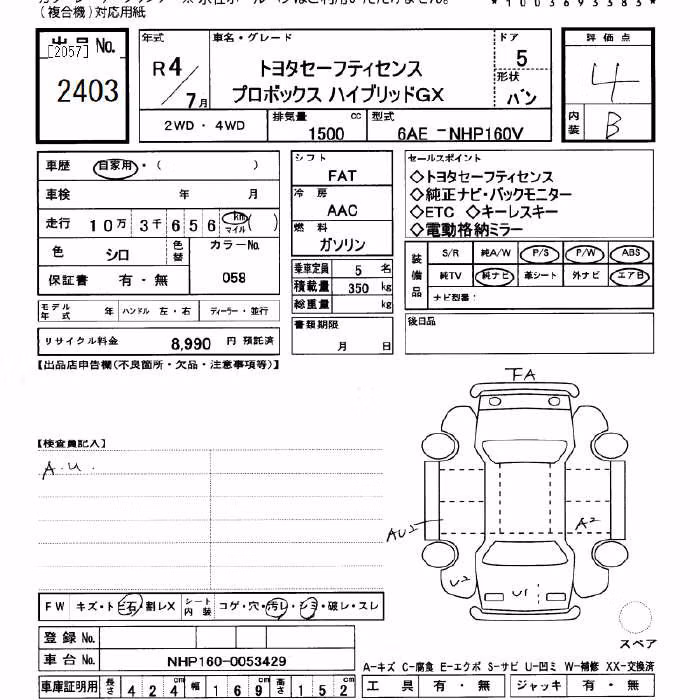 (複合機)対応用紙
*1003693383*
出品No.
[2057]
2403
年式
R4/7月
車名・グレード
トヨタセーフティセンス
プロボックス ハイブリッドGX
ドア
5
形状
バン
評価点
4
内装
B
2WD・4WD
排気量
1500 cc
型式
6AE-NHP160V
車歴 自家用・( )
車検 年 月
走行 10万3千656 km マイル ( )
色 シロ 色替 カラーNo. 058
保証書 有・無
シフト
FAT
冷房
AAC
燃料
ガソリン
乗車定員 5 名
積載量 350 kg
総重量 kg
書類期限
月 日
セールスポイント
◇トヨタセーフティセンス
◇純正ナビ・バックモニター
◇ETC ◇キーレスキー
◇電動格納ミラー
装備品
S/R 純A/W P/S P/W ABS
純TV 純ナビ 革シート 外ナビ エアB
ナビ型番:
モデル年式 年 ハンドル 左・右 ディーラー・並行
後日品
リサイクル料金 8,990 円 預託済
【出品店申告欄(不良箇所・欠品・注意事項等)】
【検査員記入】
A.U.
FA
AU2
A2
U2
U1
FW キズ・トビ石・割レX シート内装 コゲ・穴・汚レ・シミ・破レ・スレ
スペア
登録No.
車台No. NHP160-0053429
A-キズ C-腐食 E-エクボ S-サビ U-凹ミ W-補修 XX-交換済
車庫証明用 長さ 424cm 幅 169cm 高さ 152cm
工具 有・無 ジャッキ 有・無